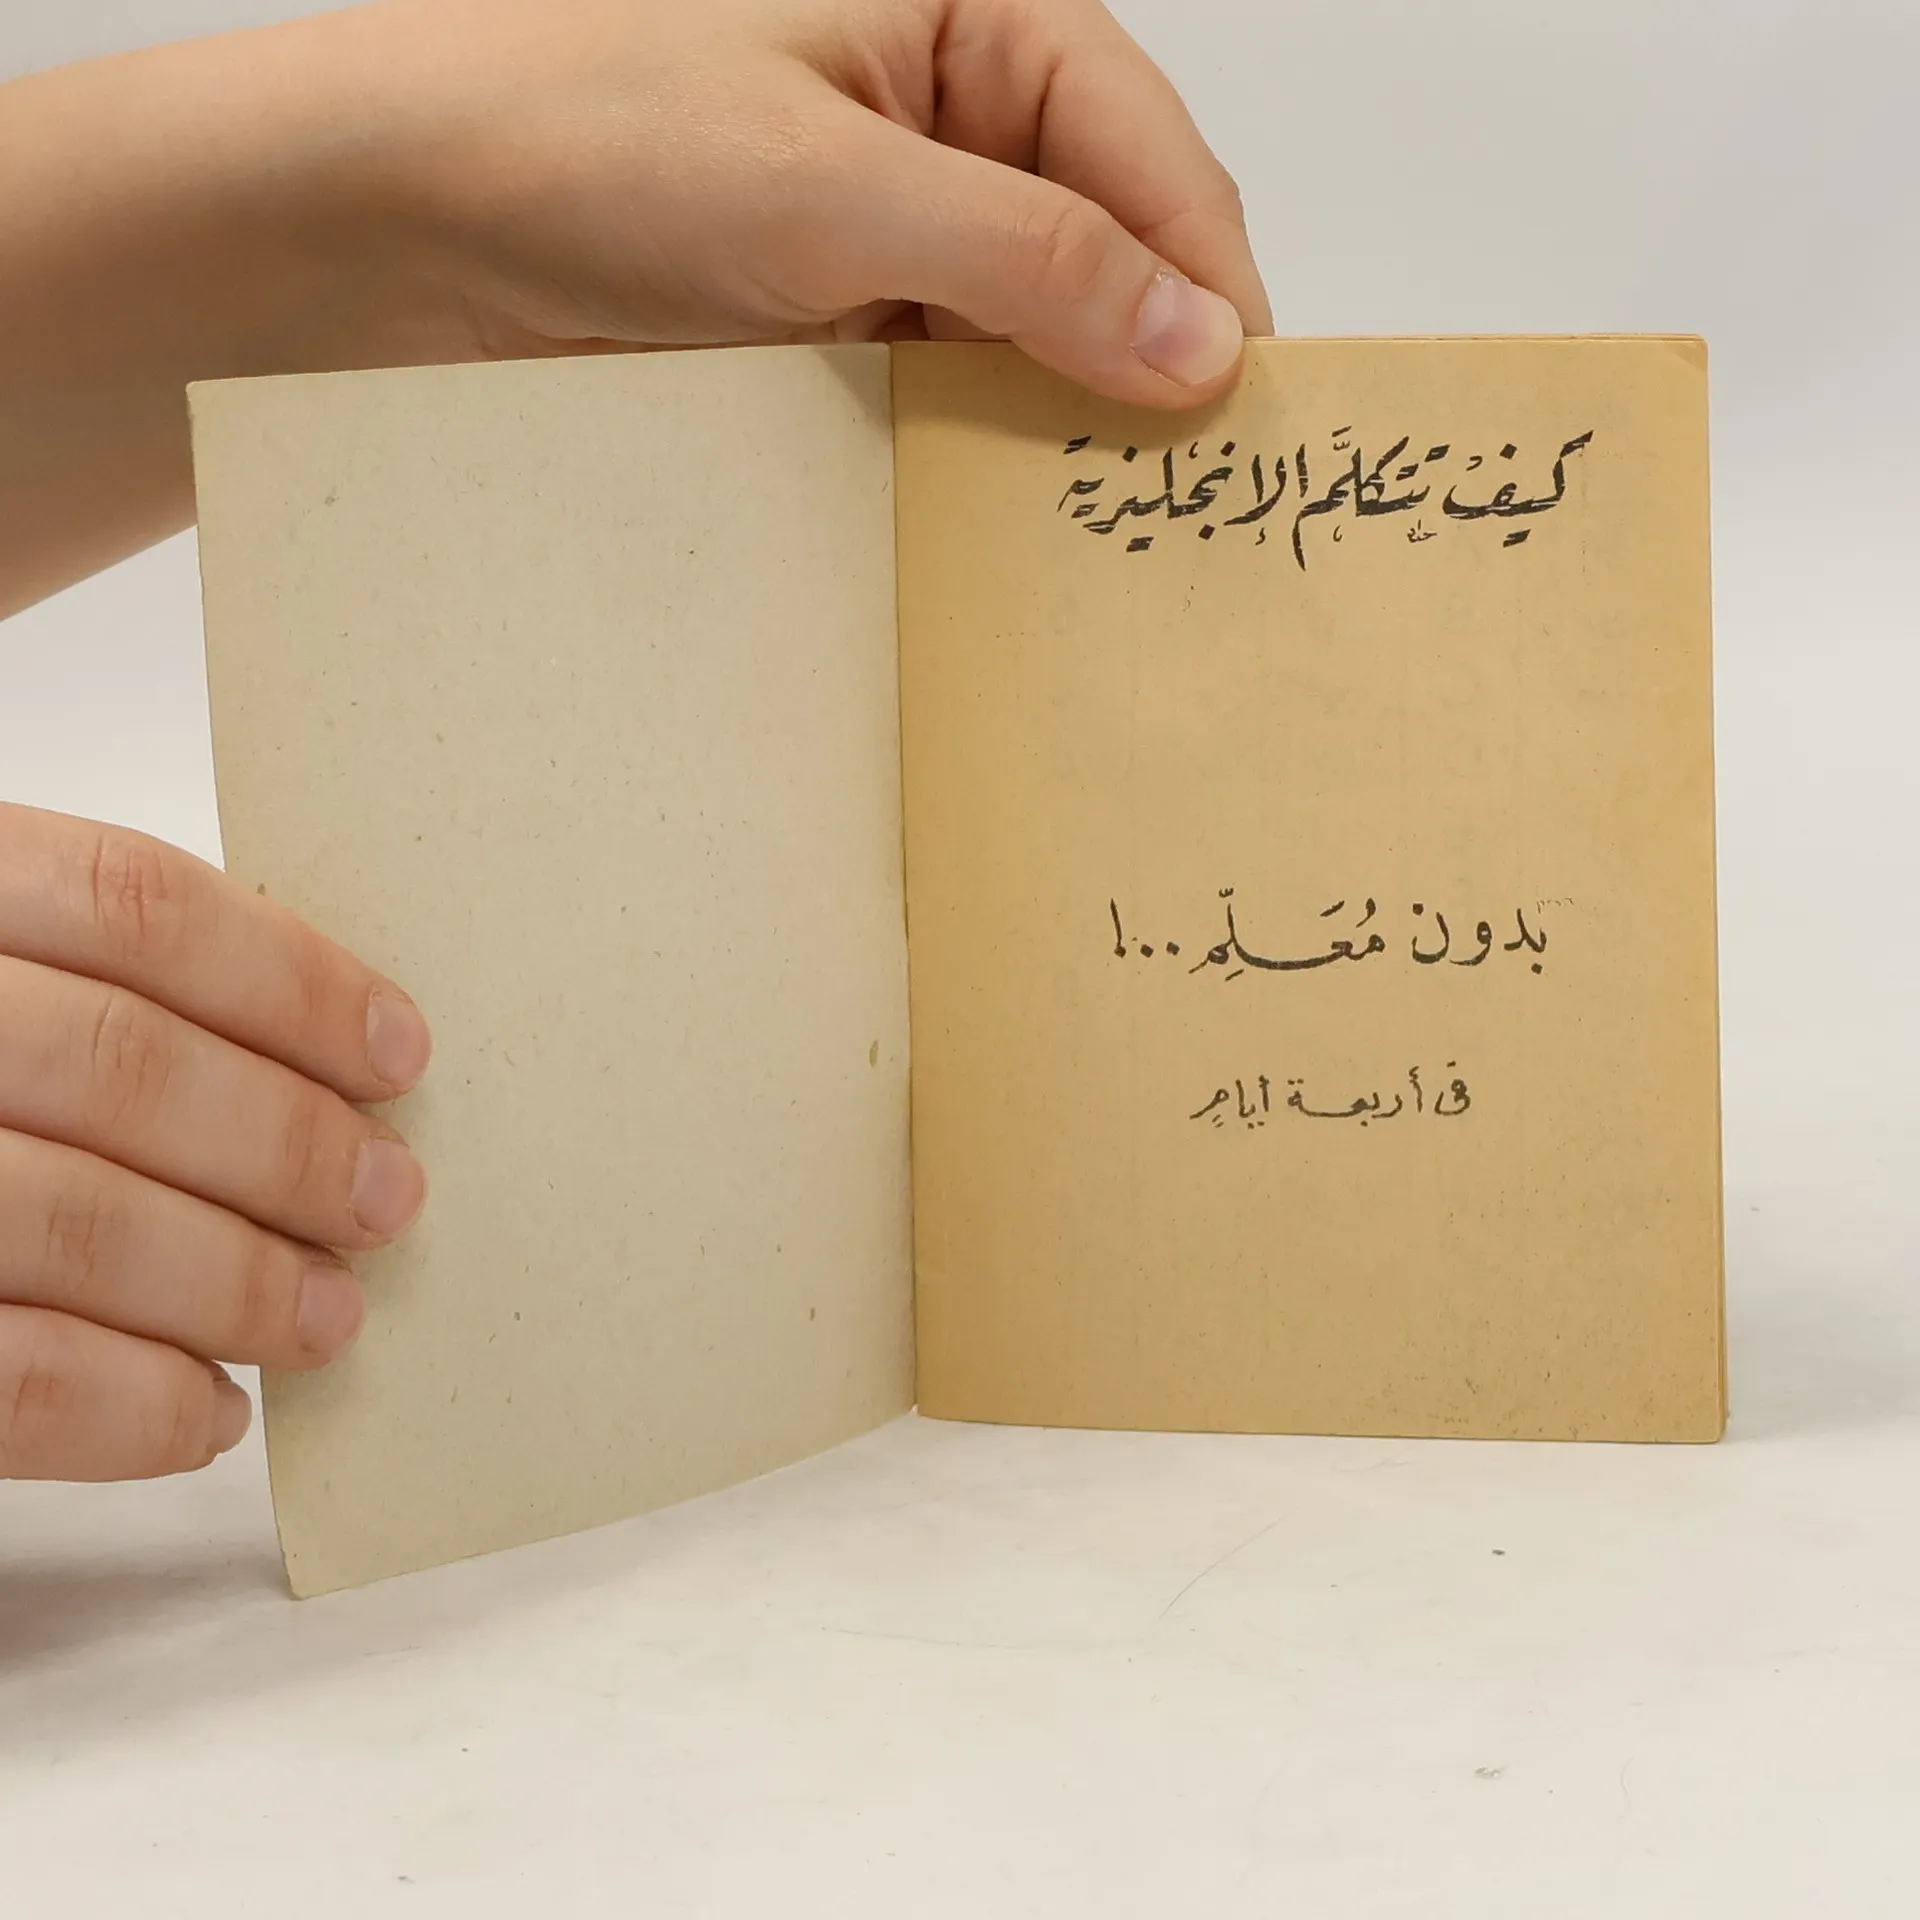 كيفْ تتكلَّم الإنجليزية
بدون مُعَلِّم ..!
في أربعة أيامٍ